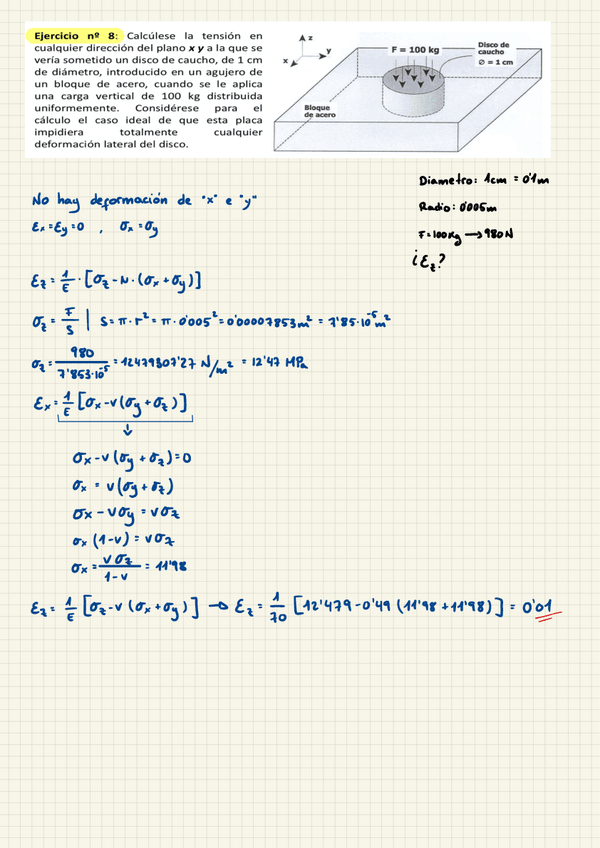 Ejercicio nº 8: Calcúlese la tensión en
cualquier dirección del plano x y a la que se
vería sometido un disco de caucho, de 1 cm
de diámetro, introducido en un agujero de
un bloque de acero, cuando se le aplica
una carga vertical de 100 kg distribuida
uniformemente. Considérese para el
cálculo el caso ideal de que esta placa
impidiera totalmente cualquier
deformación lateral del disco.
z
y
x
F = 100 kg
Disco de
caucho
∅ = 1 cm
Bloque
de acero
Diametro: 1cm = 0'1m
Radio: 0'005m
F=100Kg → 980N
¿Ez?
No hay deformación de "x" e "y"
Ex=Ey=0 , σx=σy
Ez = 1/E · [σz - N · (σx + σy)]
σz = F/S | S = π · r² = π · 0'005² = 0'00007853m² = 7'85·10⁻⁵ m²
σz = 980/7'853·10⁻⁵ = 12479307'27 N/m² = 12'47 MPa
Ex = 1/E [σx - v(σy + σz)]
↓
σx - v(σy + σz) = 0
σx = v(σy + σz)
σx - vσy = vσz
σx (1-v) = vσz
σx = vσz/1-v = 11'98
Ez = 1/E [σz - v (σx + σy)] → Ez = 1/70 [12'479 - 0'49 (11'98 + 11'98)] = 0'01